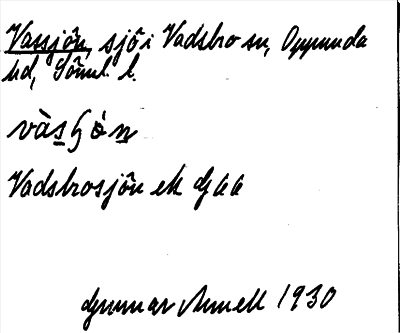 Vassjön, sjö i Vadsbro sn, Oppunda
hd, Söml. l.
vàsɧòn
Vadsbrosjön ek G 66
Gunnar Arnell 1930